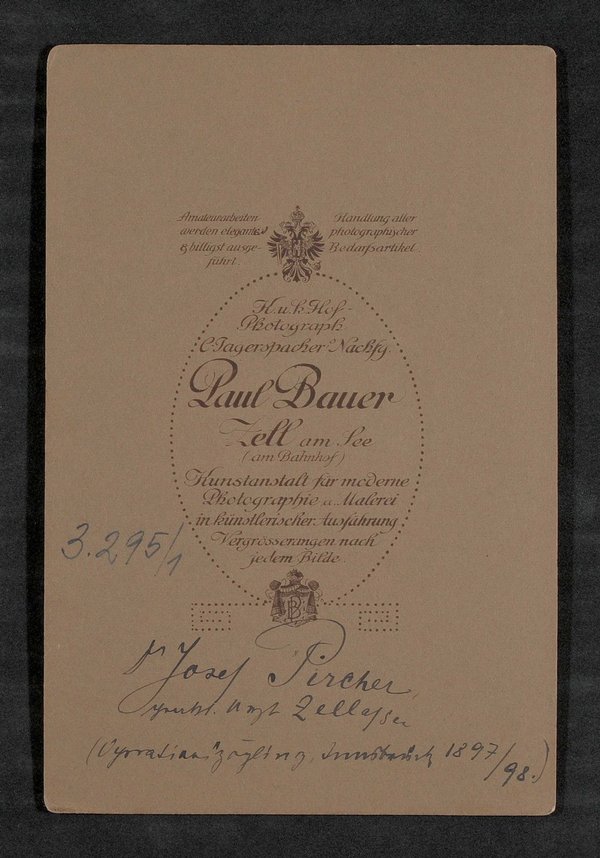 Amateurarbeiten
werden elegant
& billigst ausge-
führt.
Handlung aller
photographischer
Bedarfsartikel.
K.u.k. Hof-
Photograph
C. Jagerspacher's Nachfg.
Paul Bauer
Zell am See
(am Bahnhof)
Kunstanstalt für moderne
Photographie u. Malerei
in künstlerischer Ausführung
Vergrösserungen nach
jedem Bilde.
B
3.295/1
Dr Josef Pircher
prakt. Arzt Zell a/See
(Operationszögling, Innsbruck 1897/98.)